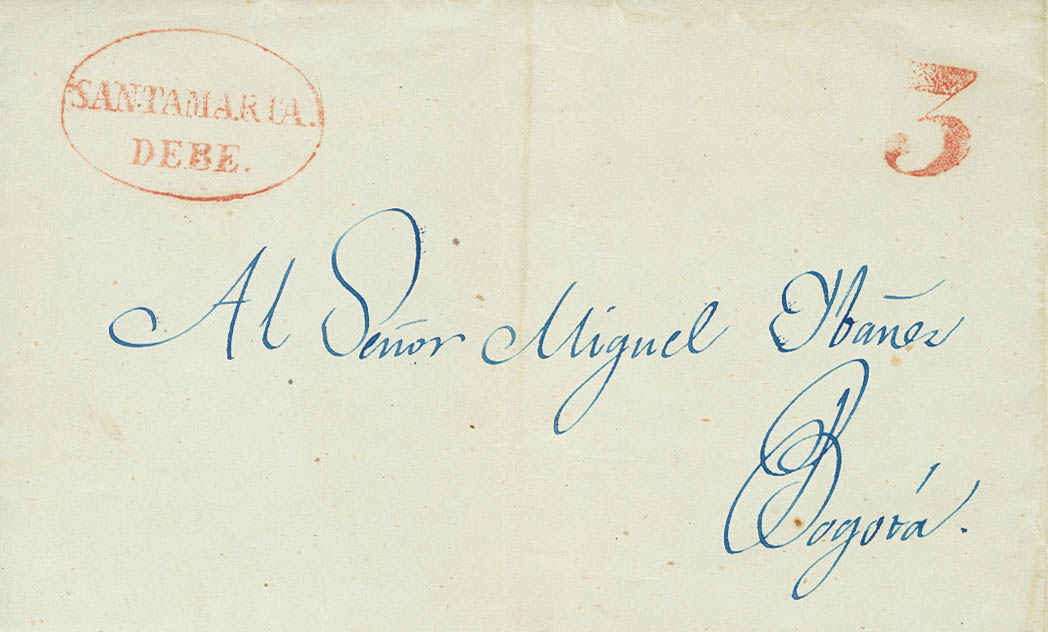 SANTAMARTA.
DEBE.
3
Al Señor Miguel Ybañez
Bogotá.